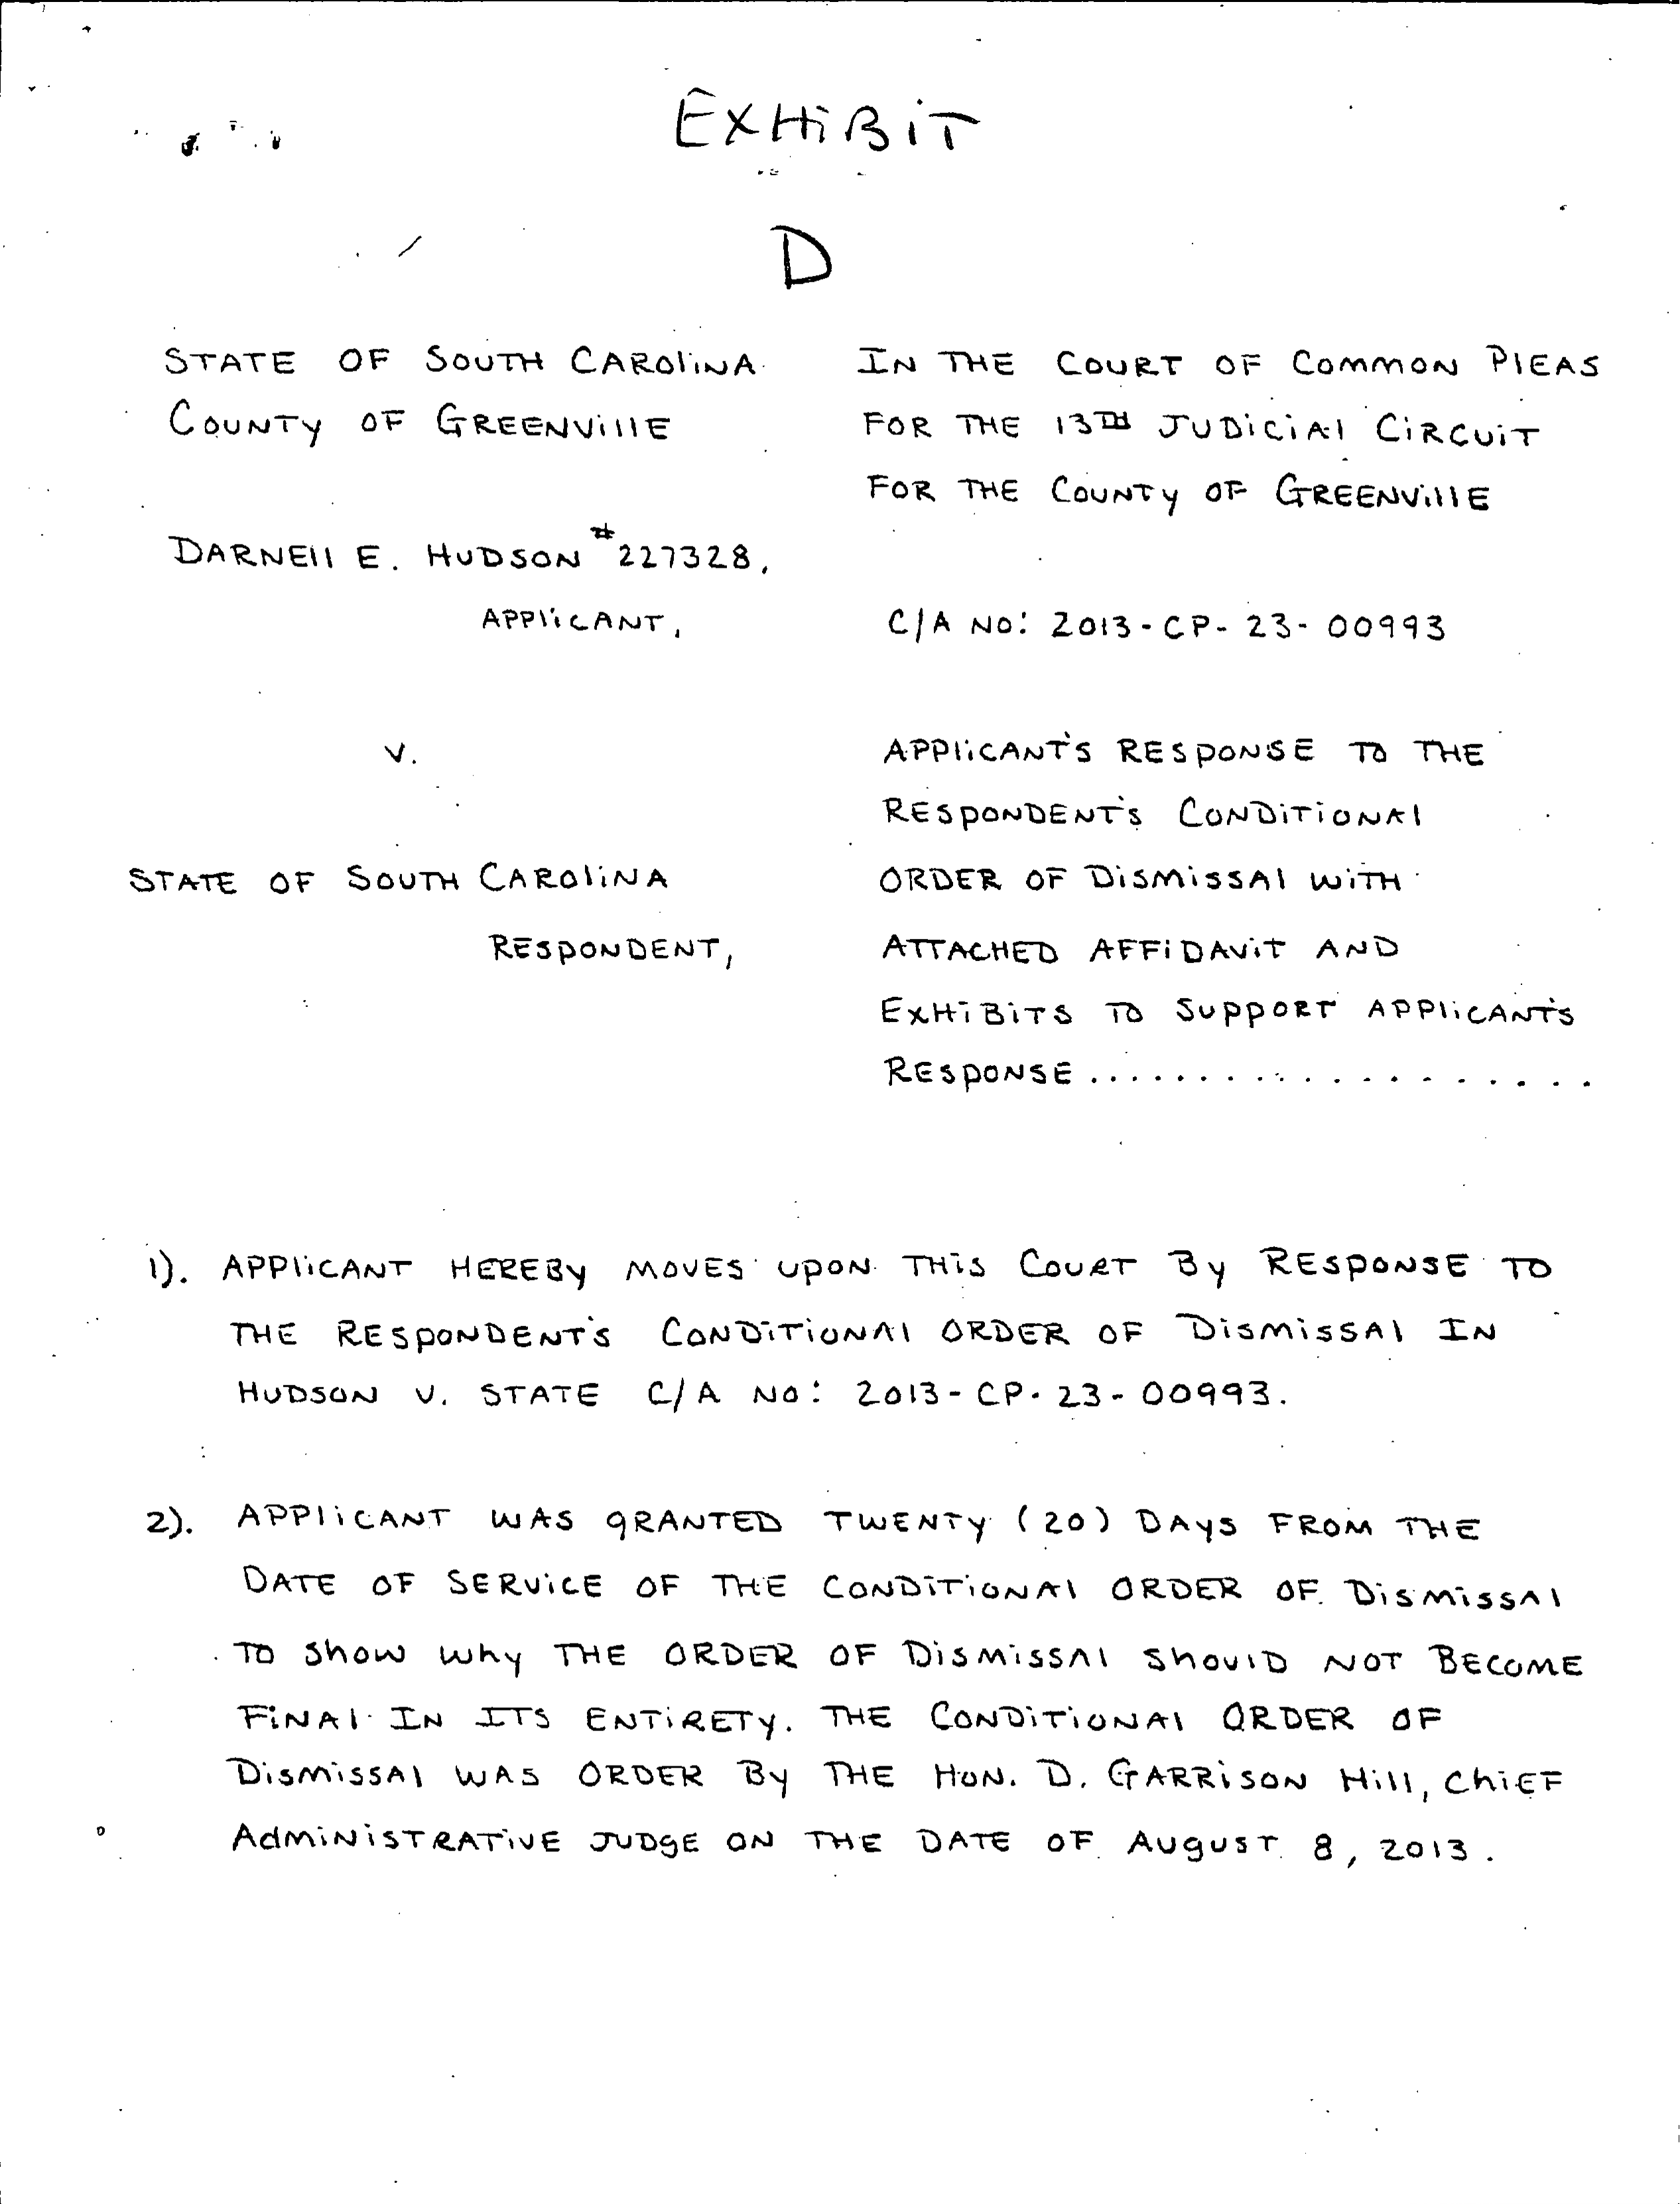 EXHIBIT
D
STATE OF SOUTH CAROLINA
COUNTY OF GREENVILLE
IN THE COURT OF COMMON PLEAS
FOR THE 13TH JUDICIAL CIRCUIT
FOR THE COUNTY OF GREENVILLE
DARNELL E. HUDSON #227328,
APPLICANT,
C/A NO: 2013-CP-23-00993
V.
STATE OF SOUTH CAROLINA
RESPONDENT,
APPLICANT'S RESPONSE TO THE
RESPONDENT'S CONDITIONAL
ORDER OF DISMISSAL WITH
ATTACHED AFFIDAVIT AND
EXHIBITS TO SUPPORT APPLICANT'S
RESPONSE....................
1). APPLICANT HEREBY MOVES UPON THIS COURT BY RESPONSE TO
THE RESPONDENT'S CONDITIONAL ORDER OF DISMISSAL IN
HUDSON V. STATE C/A NO: 2013-CP-23-00993.
2). APPLICANT WAS GRANTED TWENTY (20) DAYS FROM THE
DATE OF SERVICE OF THE CONDITIONAL ORDER OF DISMISSAL
TO SHOW WHY THE ORDER OF DISMISSAL SHOULD NOT BECOME
FINAL IN ITS ENTIRETY. THE CONDITIONAL ORDER OF
DISMISSAL WAS ORDER BY THE HON. D. GARRISON HILL, CHIEF
ADMINISTRATIVE JUDGE ON THE DATE OF AUGUST 8, 2013.